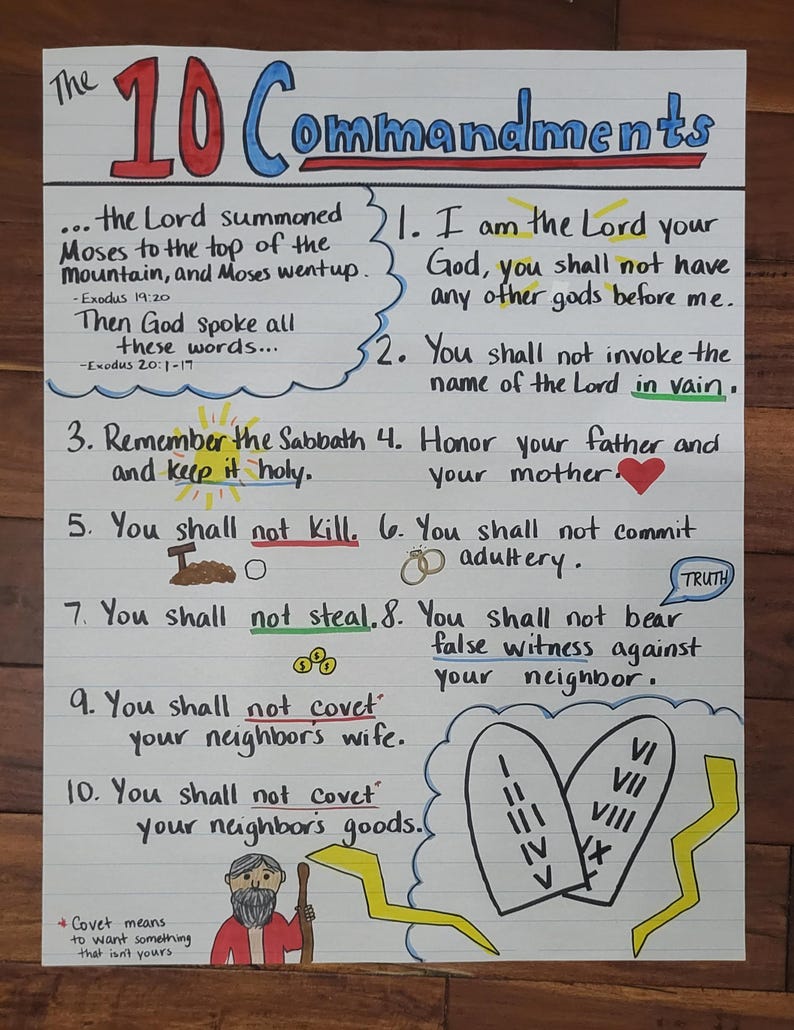 The 10 Commandments
...the Lord summoned
Moses to the top of the
mountain, and Moses went up.
-Exodus 19:20
Then God spoke all
these words...
-Exodus 20:1-17
1. I am the Lord your
God, you shall not have
any other gods before me.
2. You shall not invoke the
name of the Lord in vain.
3. Remember the Sabbath
and keep it holy.
4. Honor your father and
your mother.
5. You shall not kill.
6. You shall not commit
adultery.
7. You shall not steal.
TRUTH
8. You shall not bear
false witness against
your neighbor.
9. You shall not covet*
your neighbor's wife.
10. You shall not covet*
your neighbor's goods.
I
II
III
IV
V
VI
VII
VIII
IX
X
* Covet means
to want something
that isn't yours
$ $ $